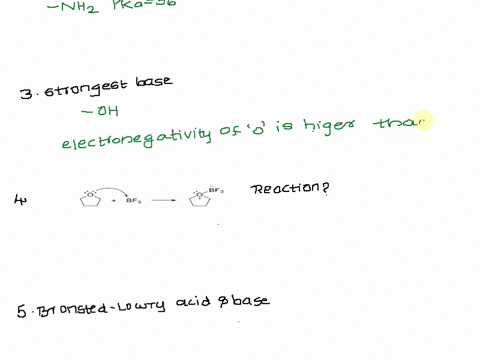 -NH2 PKa=36
3. strongest base
-OH
electronegativity of 'o' is higer than
4
O + BF3 → O BF3 Reaction?
5. Bronsted-Lowry acid & base